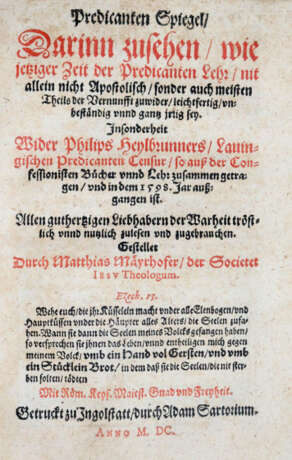 Predicanten Spiegel/
Darinn zusehen/ wie
jetziger Zeit der Predicanten Lehr/ nit
allein nicht Apostolisch/ sonder auch meisten
Theils der Vernunfft zuwider/ leichtfertig/ vn-
beständig vnnd gantz jrrig sey.
Insonderheit
Wider Philips Heylbrunners/ Lauin-
gischen Predicanten Censur/ so auß der Con-
fessionisten Bücher vnnd Lehr zusammen getra-
gen/ vnd in dem 1598. Jar auß-
gangen ist.
Allen guthertzigen Liebhabern der Warheit tröst-
lich vnnd nutzlich zulesen vnd zugebrauchen.
Gestellet
Durch Matthias Mäyrhofer/ der Societet
IESV Theologum.
Ezech. 13.
Wehe euch/ die jhr Küsselein macht vnder alle Elenbogen/ vnd
Hauptküssen vnder die Häupter alles Alters/ die Seelen zufa-
hen. Wann sie dann die Seelen meines Volcks gefangen haben/
so versprechen sie jhnen das Leben/ vnnd entheiligen mich gegen
meinem Volck/ vmb ein Hand vol Gersten/ vnd vmb
ein Stücklein Brot/ in dem daß sie die Seelen/ die nit ster-
ben solten/ tödten
Mit Röm. Keys. Maiest. Gnad vnd Freyheit.
Getruckt zu Ingolstatt/ durch Adam Sartorium.
ANNO M. DC.